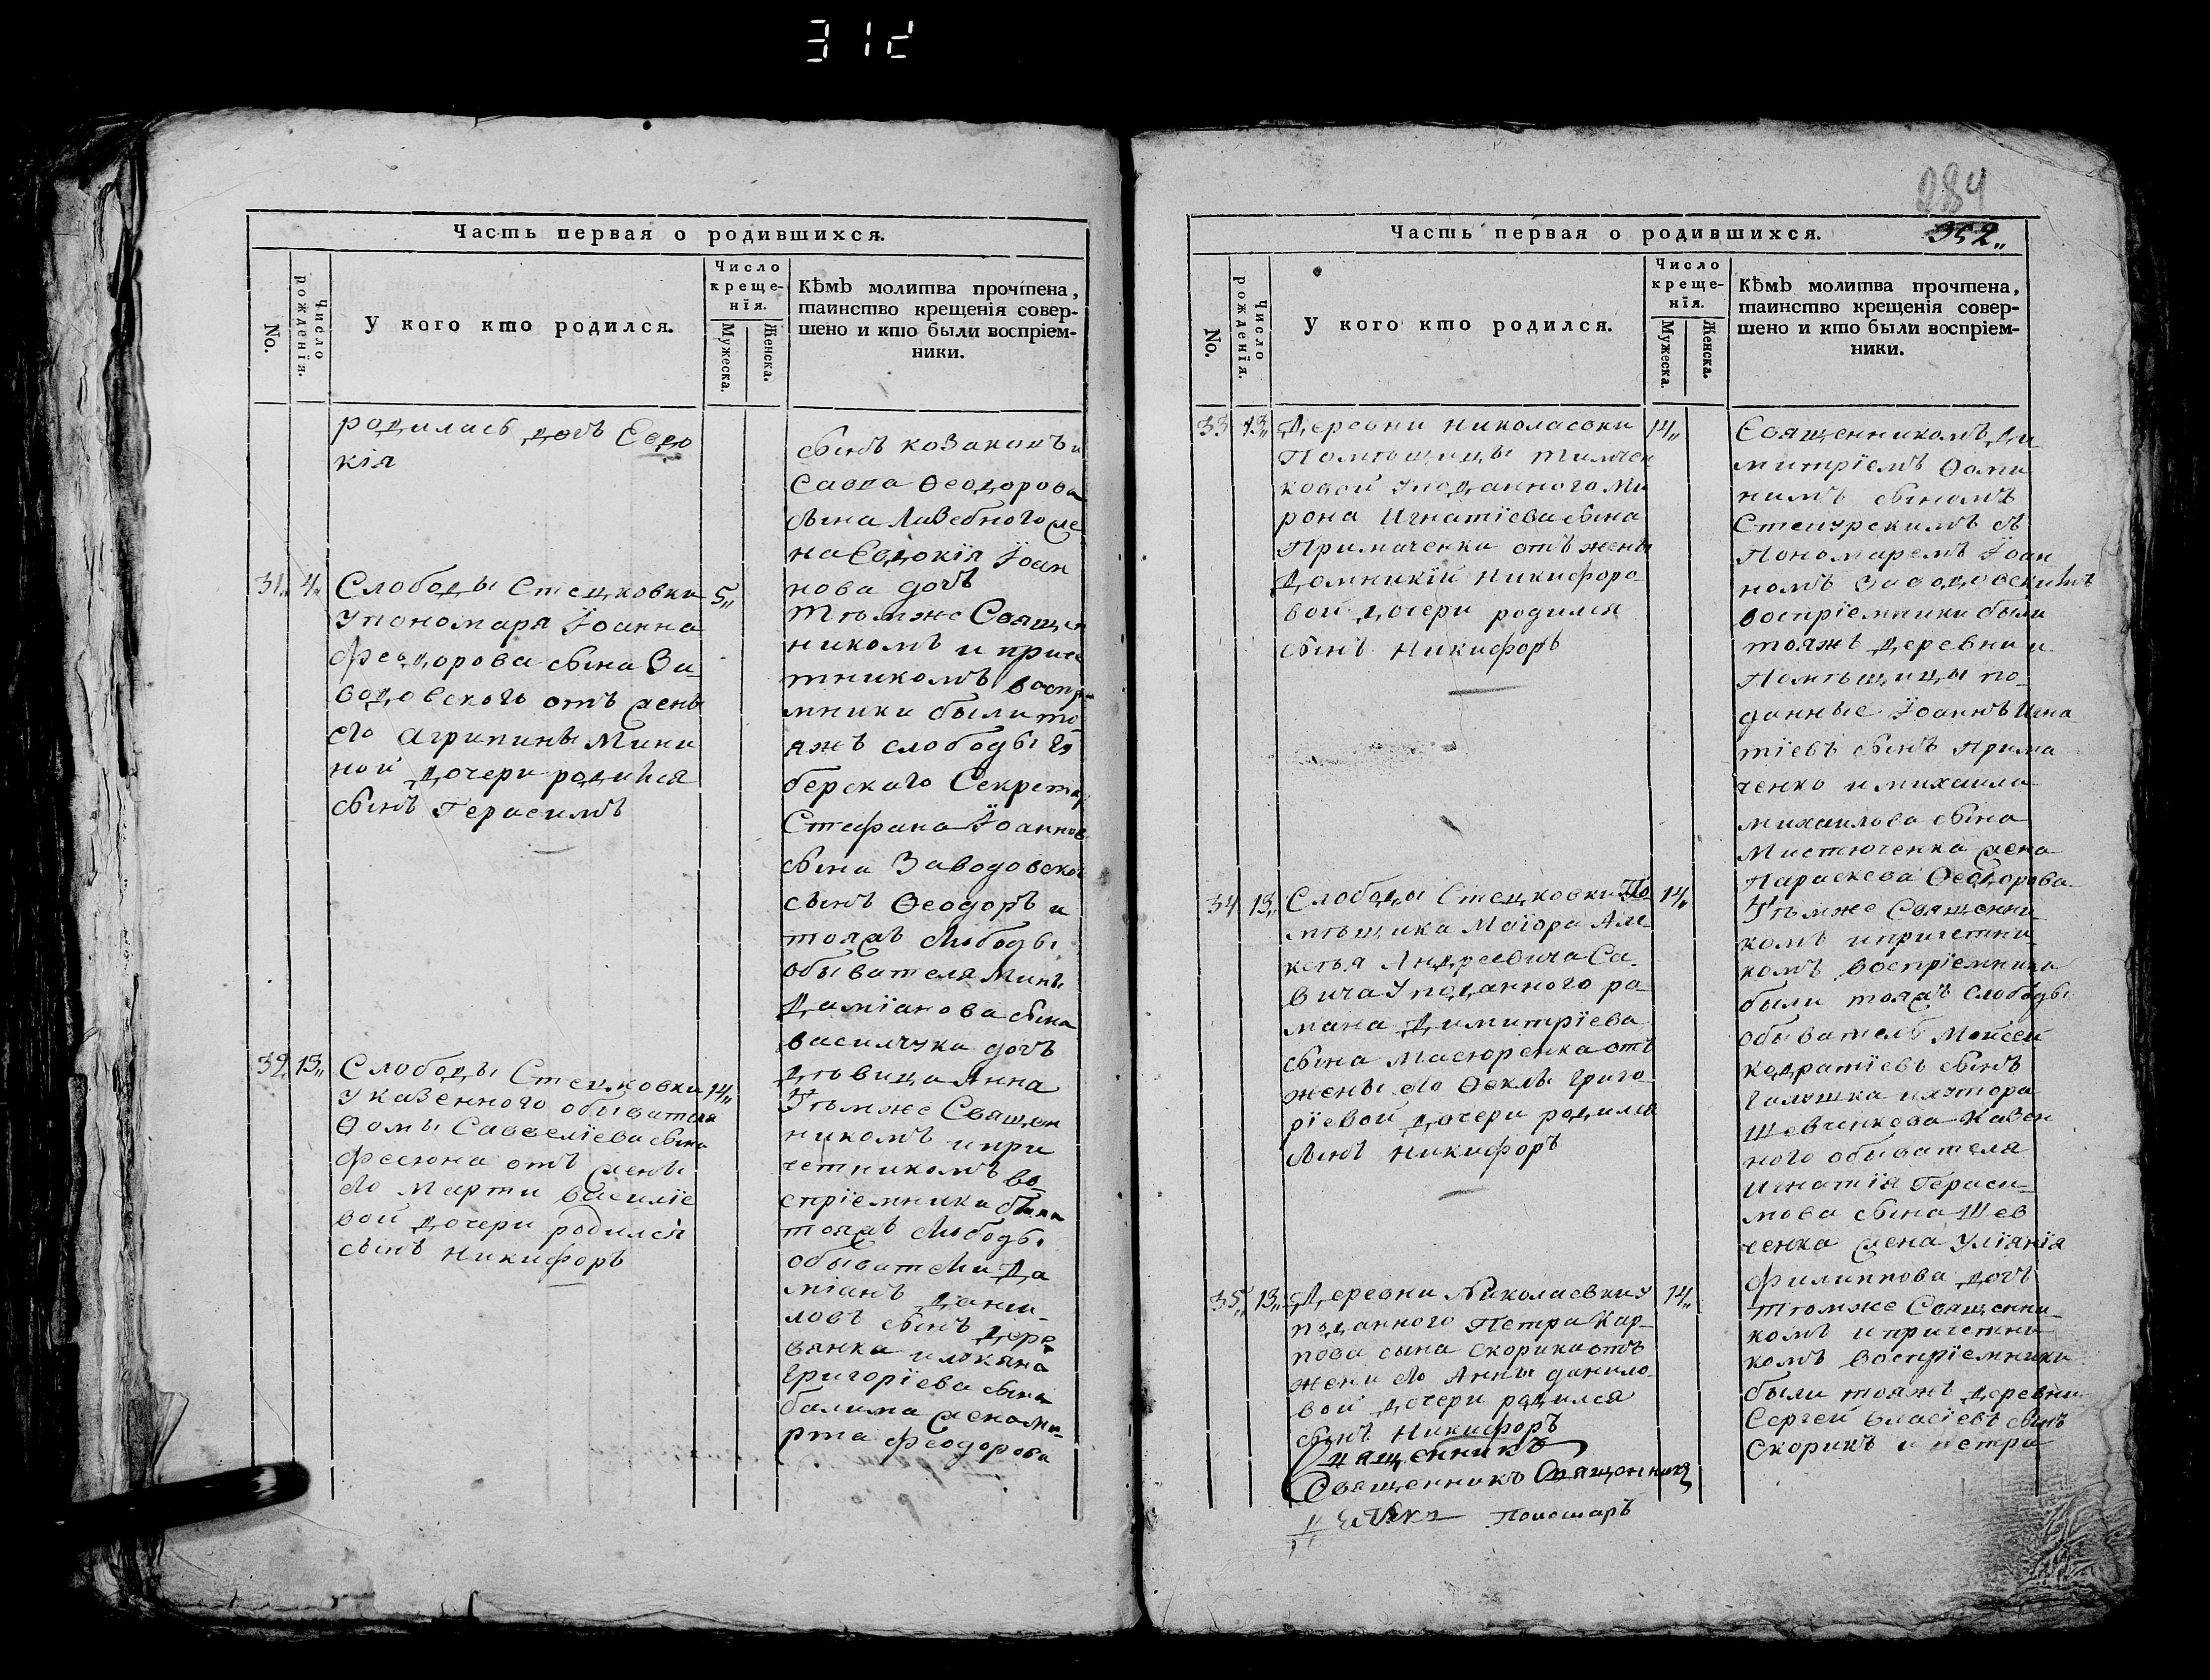 312
Часть первая о родившихся.
No.
Число рожденія.
У кого кто родился.
Число крещенїя.
Мужеска.
Женска.
Кѣмъ молитва прочтена,
таинство крещенія совер-
шено и кто были воспріем-
ники.
родилась дочъ Евдо
кія
сынъ козакинъ и
Савва Ѳеодорова
сына
на Евдокїя Їоан
нова дочъ
31„ 4„
Слободы Стецковки
5„
у пономаря Їоанна
Феодорова сына За-
водовского отъ жены
его Агрипины Мини
ной дочери родился
сынъ Герасимъ
Тѣмже Священ
никомъ и приче
тникомъ воспрі
мники были то
яжъ слободы Гу
бернскаго Секретар
Стефана Їоаннов
сына Заводовског
сынъ Ѳеодоръ и
тояжъ слободы
обывателя Мины
Дамїанова сына
василчука дочъ
дѣвица Анна
32„ 13„
Слободы Стецковки
14„
у казенного обывателя
Ѳомы Савеелїева сына
Фесюна отъ жены
его Марти василїе
вой дочери родился
сынъ Никифоръ
Тѣмже Священ
никомъ и при
четникомъ во
спрїемники были
тояжъ слободы
обыватели Да
мїанъ Дани-
ловъ сынъ Дере
вянка и лукяна
Григорїева сына
балима жена ма-
рта Феодорова
284
352„
Часть первая о родившихся.
No.
Число рожденїя.
У кого кто родился.
Число крещенїя.
Мужеска.
Женска.
Кѣмъ молитва прочтена,
таинство крещенія совер-
шено и кто были воспріем-
ники.
33 13„
Деревни Николаевки
14„
Помѣщицы Тимчен
ковой у поданного Ми
рона Игнатїева сына
Примаченка отъ жены
Домникїй Никифоро-
вой дочери родился
сынъ Никифоръ
Священникомъ Ди
митрїемъ Ѳоми
нимъ сыномъ
Степурскимъ съ
Пономаремъ Їоан
номъ Заводовскимъ
воспрїемники были
тояжъ деревни и
Помѣщицы по-
данные Їоаннъ Игна
тїевъ сынъ Прима
ченко и михаила
михаилова сына
Мистюченка жена
Параскева Ѳеодорова
34 13„
Слободы Стецковки По
14„
мѣщика Маїора Але-
ксѣя Андреевича Са-
вича у поданного ро-
мана Димитрїева
сына Масюренка отъ
жены его Ѳеклы Григо-
рїевой дочери родился
сынъ Никифоръ
Тѣмже Священни
комъ и причетни
комъ воспрїемники
были тояжъ слободы
обыватель Моисей
кодратїевъ сынъ
Галушка и хутора
Шевченкова казен
ного обывателя
Игнатїя Гераси-
мова сына Шев
ченка жена Улїянїя
филиппова дочъ
35„ 13„
Деревни Николаевки у
14„
поданного Петра Кар-
пова сына Скорика отъ
жени его Анны данило-
вой дочери родился
сынъ Никифоръ
Тѣмже Священни-
комъ и причетни
комъ воспрїемники
были тояжъ деревни
Сергей власїевъ сынъ
Скорикъ и петра
Священникъ
Священникъ Священникъ
Пономаръ